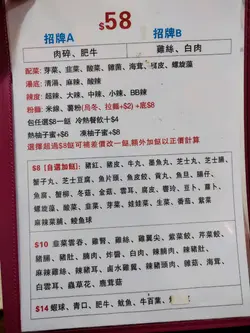 $58
招牌A 招牌B
肉碎、肥牛 雞絲、白肉
配菜: 芽菜、韭菜、酸菜、雜菌、海茸、豆皮、螺旋藻
湯底: 清湯、麻辣、酸辣
辣度: 超辣、大辣、中辣、小辣、BB辣
粉麵: 米線、薯粉(烏冬、拉麵+$2) +底$8
包任選$8一餸 冷熱餐飲+$4
熱柚子蜜+$6 凍柚子蜜+$8
選擇超過$8餸可補差價改一餸,額外加餸以正價計算
$8 [自選加餸]: 豬紅、豬皮、牛丸、墨魚丸、芝士丸、芝士腸、
蟹子丸、芝士豆腐、魚片頭、魚皮餃、貢丸、魚旦、腸仔、
魚腐、蟹柳、冬菇、金菇、雲耳、腐皮、響玲、豆卜、蘿卜、
螺旋藻、酸菜、韭菜、芽菜、娃娃菜、生菜、番茄、紫菜
麻辣菜脯、鯪魚球
$10 韭菜雲吞、雞腎、雞絲、雞翼尖、紫菜餃、芹菜餃、
豬腩、豬肚、腩肉、炸醬、白肉、辣腩肉、辣豬肚、
麻辣雞絲、辣豬耳、鹵水雞翼、辣豬頭肉、雜菇、海茸、
白雲耳、蟲草花、鹿茸菇
$14 蝦球、青口、肥牛、魷魚、牛百葉、